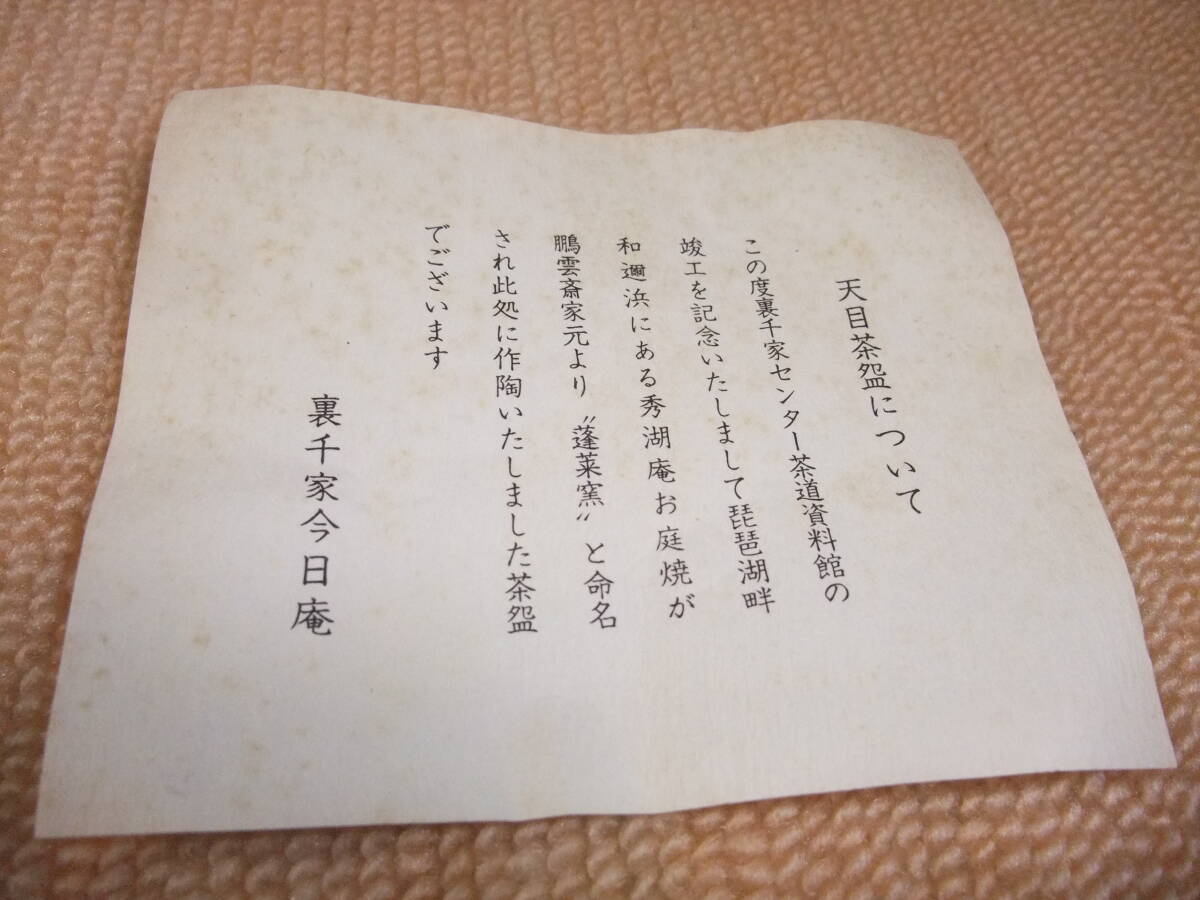 天目茶盌について
この度裏千家センター茶道資料館の
竣工を記念いたしまして琵琶湖畔
和邇浜にある秀湖庵お庭焼が
鵬雲斎家元より〝蓬莱窯〟と命名
され此処に作陶いたしました茶盌
でございます
裏千家今日庵